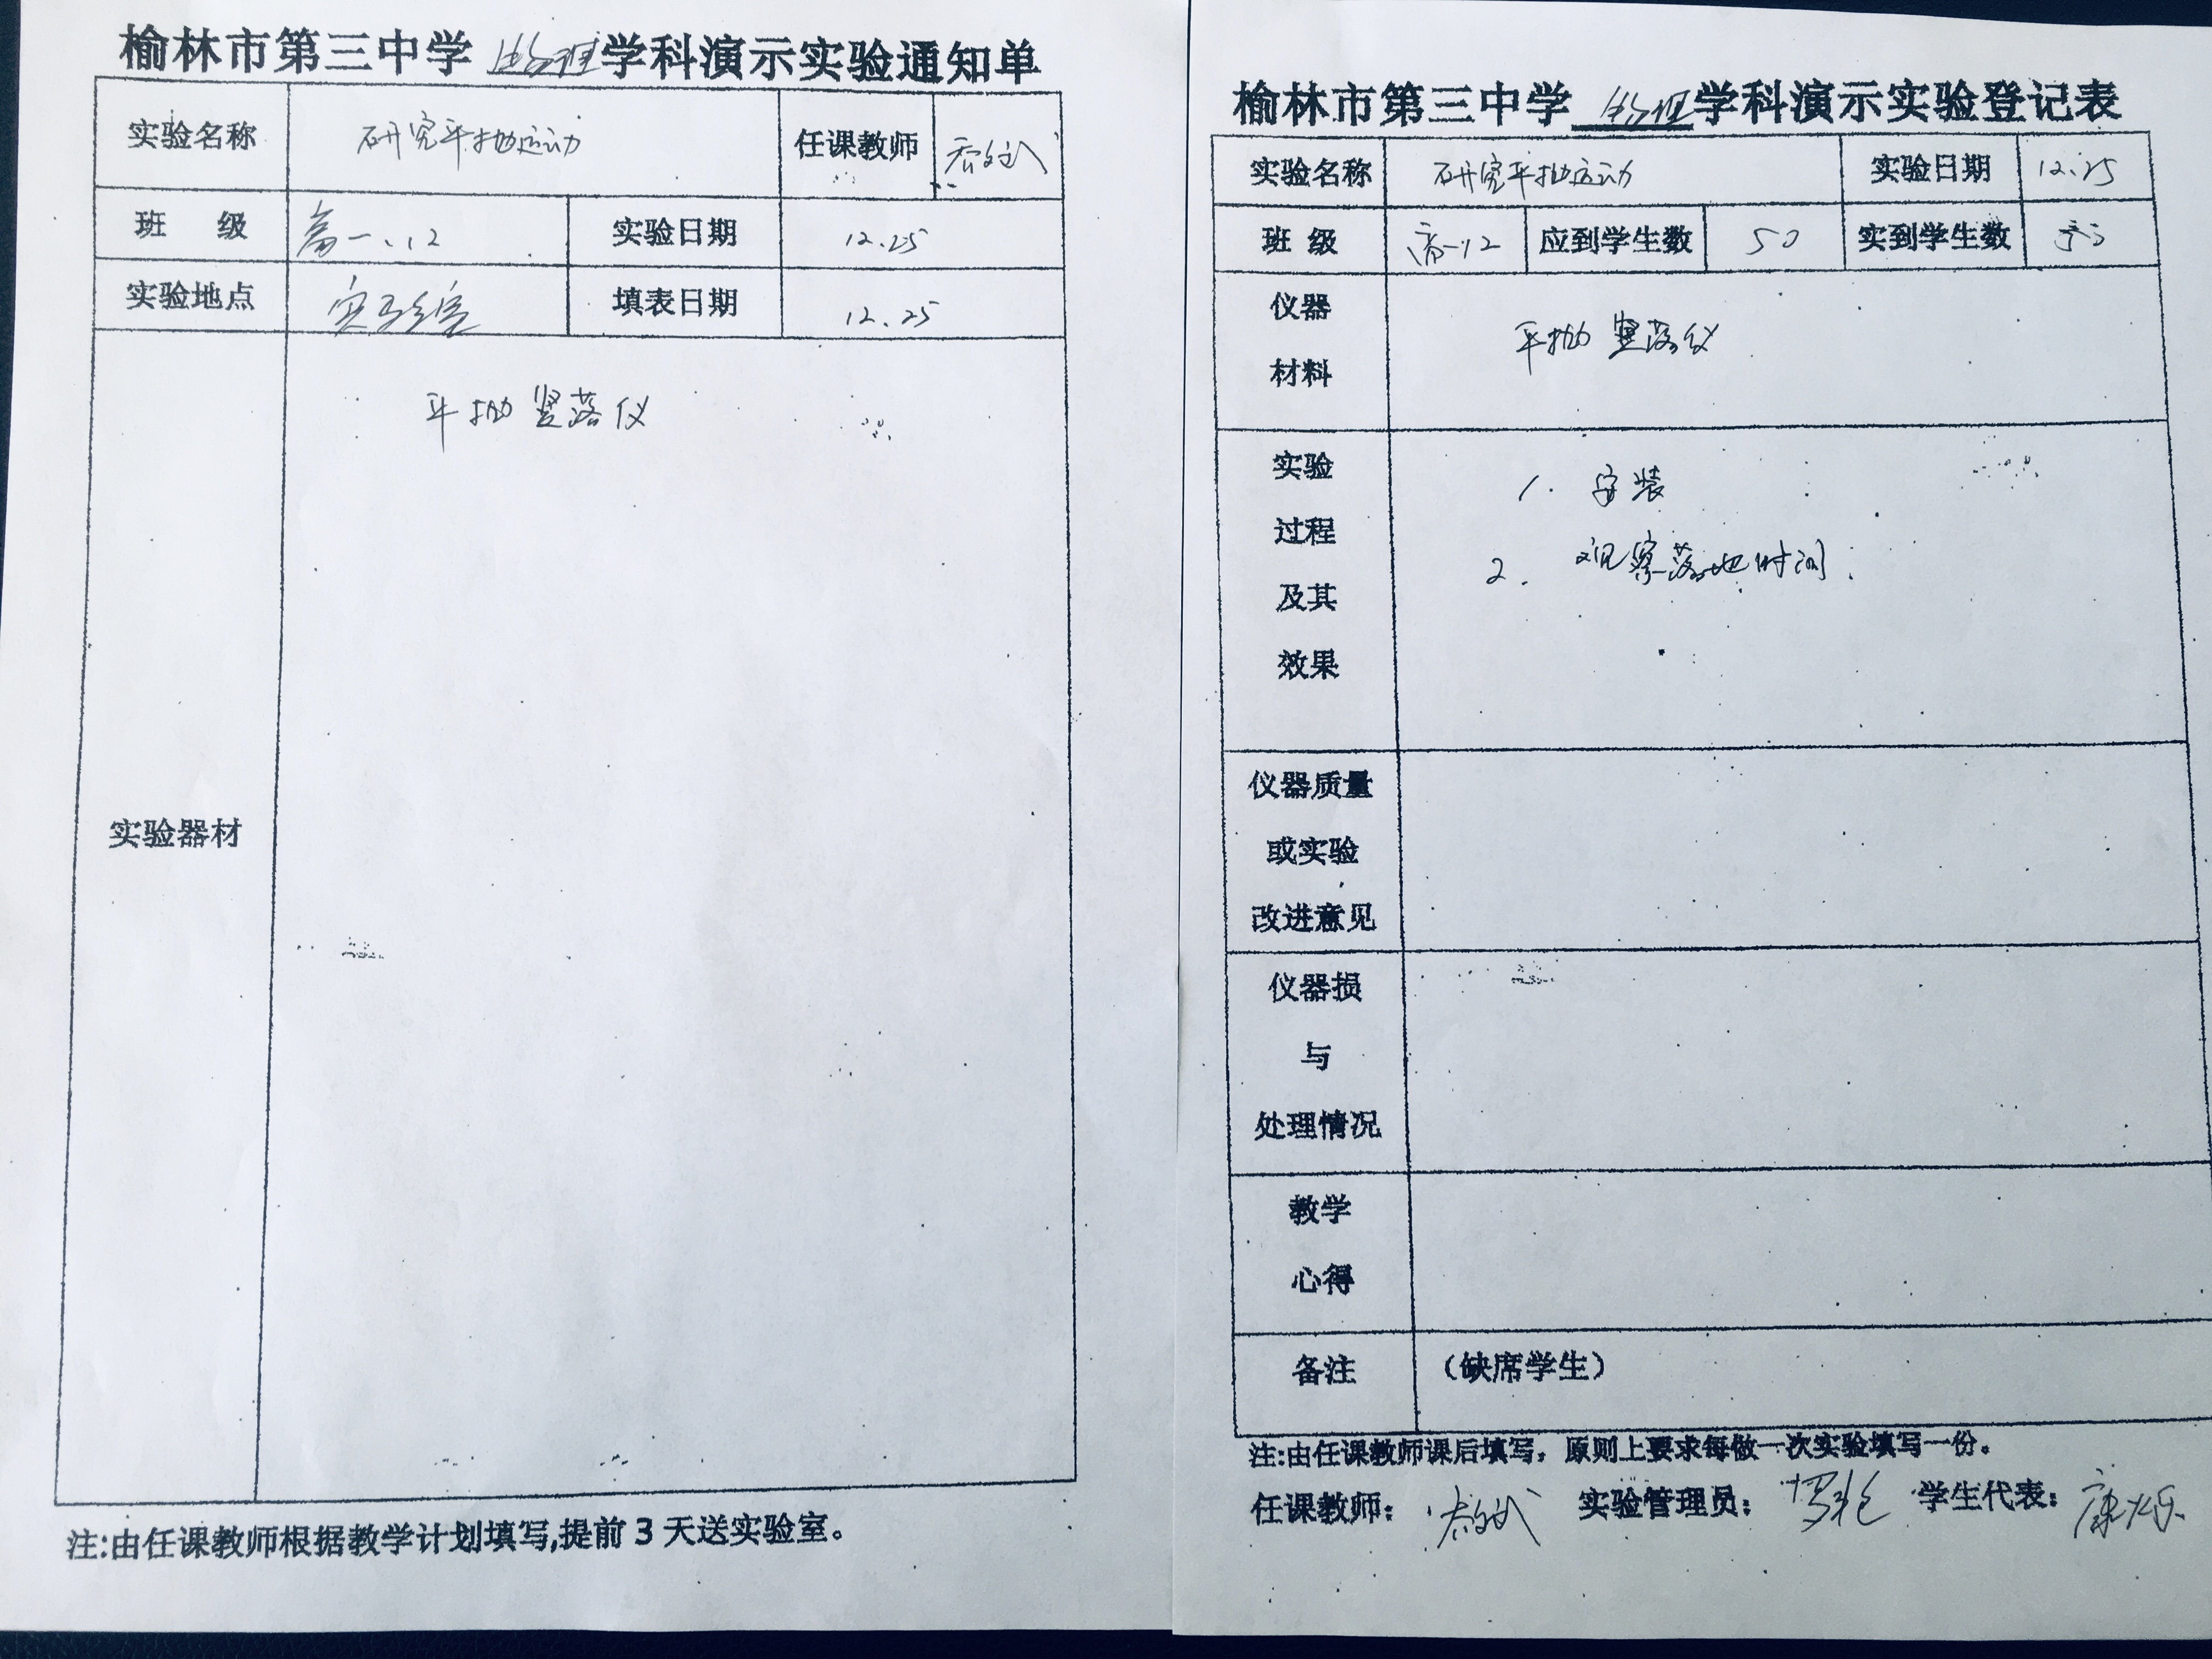 榆林市第三中学 物理 学科演示实验通知单
实验名称 研究平抛运动 任课教师
班 级 高一.12 实验日期 12.25
实验地点 实验室 填表日期 12.25
实验器材 平抛竖落仪
注:由任课教师根据教学计划填写,提前3天送实验室。
榆林市第三中学 物理 学科演示实验登记表
实验名称 研究平抛运动 实验日期 12.25
班 级 高一12 应到学生数 50 实到学生数
仪器
材料
平抛竖落仪
实验
过程
及其
效果
1. 安装
2. 观察落地时间.
仪器质量
或实验
改进意见
仪器损
与
处理情况
教学
心得
备注 （缺席学生）
注:由任课教师课后填写，原则上要求每做一次实验填写一份。
任课教师： 实验管理员： 学生代表：